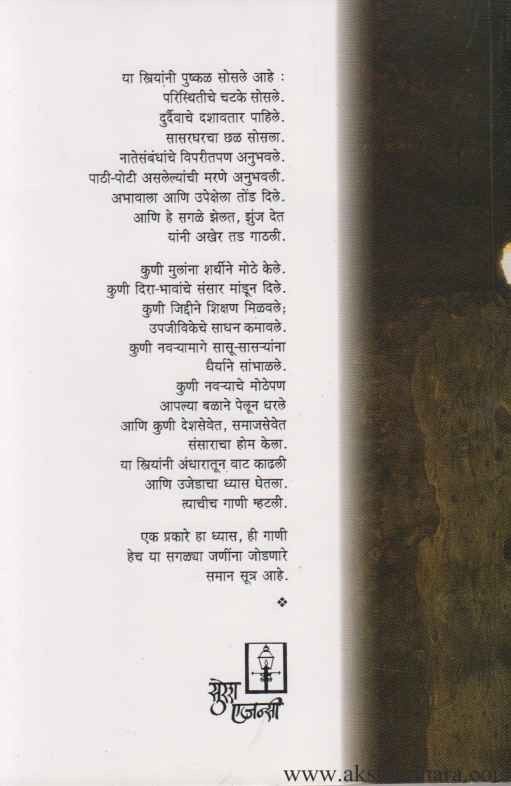 या स्त्रियांनी पुष्कळ सोसले आहे :
परिस्थितीचे चटके सोसले.
दुर्दैवाचे दशावतार पाहिले.
सासरघरचा छळ सोसला.
नातेसंबंधांचे विपरीतपण अनुभवले.
पाठी-पोटी असलेल्यांची मरणे अनुभवली.
अभावाला आणि उपेक्षेला तोंड दिले.
आणि हे सगळे झेलत, झुंज देत
यांनी अखेर तड गाठली.
कुणी मुलांना शर्थीने मोठे केले.
कुणी दिरा-भावांचे संसार मांडून दिले.
कुणी जिद्दीने शिक्षण मिळवले;
उपजीविकेचे साधन कमावले.
कुणी नवऱ्यामागे सासू-सासऱ्यांना
धैर्याने सांभाळले.
कुणी नवऱ्याचे मोठेपण
आपल्या बळाने पेलून धरले
आणि कुणी देशसेवेत, समाजसेवेत
संसाराचा होम केला.
या स्त्रियांनी अंधारातून वाट काढली
आणि उजेडाचा ध्यास घेतला.
त्याचीच गाणी म्हटली.
एक प्रकारे हा ध्यास, ही गाणी
हेच या सगळ्या जणींना जोडणारे
समान सूत्र आहे.
सुरेश
एजन्सी